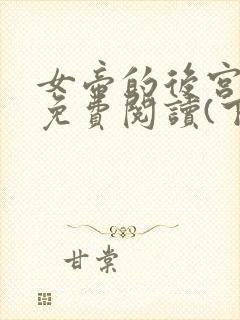 女帝的後宮
免費閱讀(下
甘棠